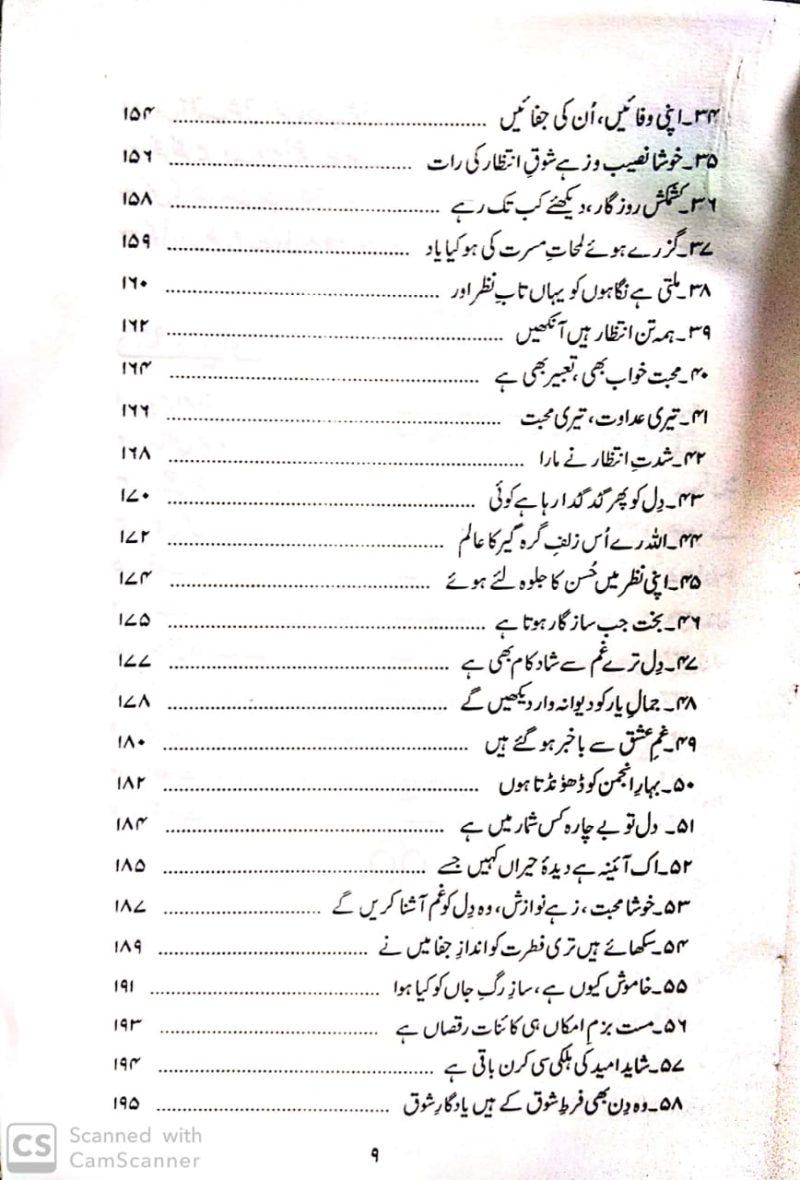 ۳۴۔اپنی وفائیں، اُن کی جفائیں ........ ۱۵۴
۳۵۔خوشا نصیب و زہے شوقِ انتظار کی رات ........ ۱۵۶
۳۶۔کشمکشِ روزگار، دیکھئے کب تک رہے ........ ۱۵۸
۳۷۔گزرے ہوئے لمحاتِ مسرت کی ہو کیا یاد ........ ۱۵۹
۳۸۔ملتی ہے نگاہوں کو یہاں تابِ نظر اور ........ ۱۶۰
۳۹۔ہمہ تن انتظار ہیں آنکھیں ........ ۱۶۲
۴۰۔محبت خواب بھی، تعبیر بھی ہے ........ ۱۶۴
۴۱۔تیری عداوت، تیری محبت ........ ۱۶۶
۴۲۔شدتِ انتظار نے مارا ........ ۱۶۸
۴۳۔دِل کو پھر گدگدا رہا ہے کوئی ........ ۱۷۰
۴۴۔اللہ رے اُس زلفِ گرہ گیر کا عالم ........ ۱۷۲
۴۵۔اپنی نظر میں حُسن کا جلوہ لئے ہوئے ........ ۱۷۴
۴۶۔بخت جب سازگار ہوتا ہے ........ ۱۷۵
۴۷۔دِل ترے غم سے شاد کام بھی ہے ........ ۱۷۷
۴۸۔جمالِ یار کو دیوانہ وار دیکھیں گے ........ ۱۷۸
۴۹۔غمِ عشق سے باخبر ہو گئے ہیں ........ ۱۸۰
۵۰۔بہارِ انجمن کو ڈھونڈتا ہوں ........ ۱۸۲
۵۱۔ دل تو بے چارہ کس شمار میں ہے ........ ۱۸۴
۵۲۔اک آئینہ ہے دیدۂ حیراں کہیں جسے ........ ۱۸۵
۵۳۔خوشا محبت، زہے نوازش، وہ دِل کو غم آشنا کریں گے ........ ۱۸۷
۵۴۔سکھائے ہیں تری فطرت کو اندازِ جفا میں نے ........ ۱۸۹
۵۵۔خاموش کیوں ہے، سازِ رگِ جاں کو کیا ہوا ........ ۱۹۱
۵۶۔مست بزمِ امکاں ہی کائنات رقصاں ہے ........ ۱۹۳
۵۷۔شاید امید کی ہلکی سی کرن باقی ہے ........ ۱۹۴
۵۸۔وہ دِن بھی فرطِ شوق کے ہیں یادگارِ شوق ........ ۱۹۵
۹
CS Scanned with
CamScanner